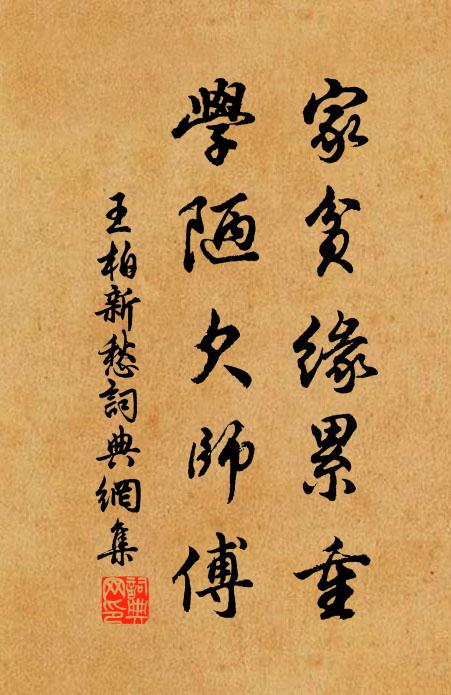 家貧緣累重
學陋欠師傅
王柏新愁詞典網集
詞典
网印